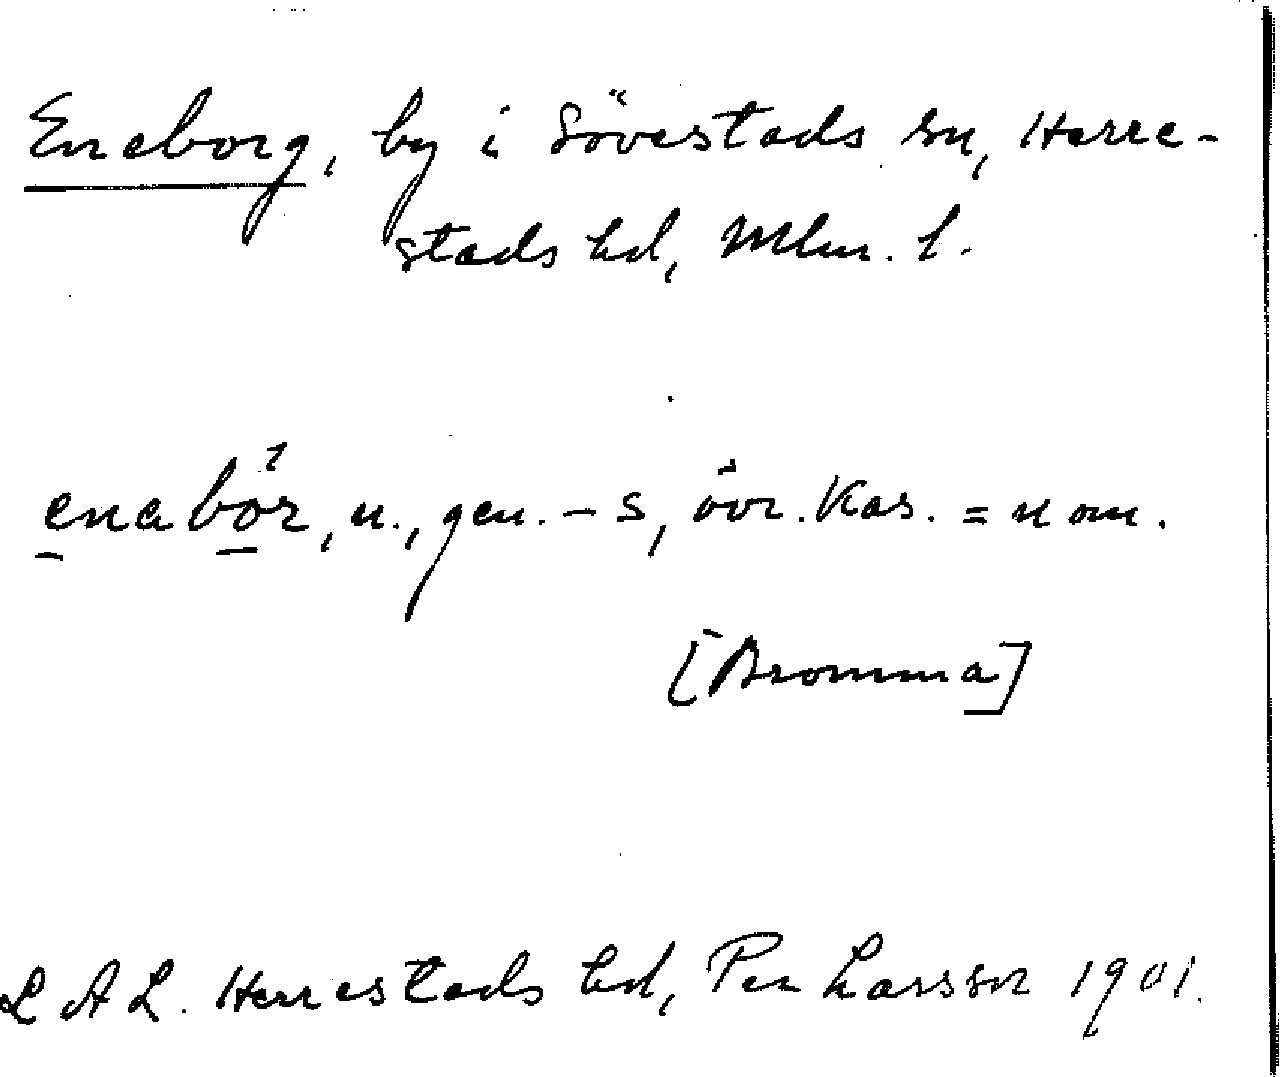 Eneborg, by i Sövestads sn, Herre-
stads hd, Mlm. l.
enabör, n., gen. – s, övr. kas. = nom.
[Bromma]
L A L. Herrestads hd, Per Larsson 1901.